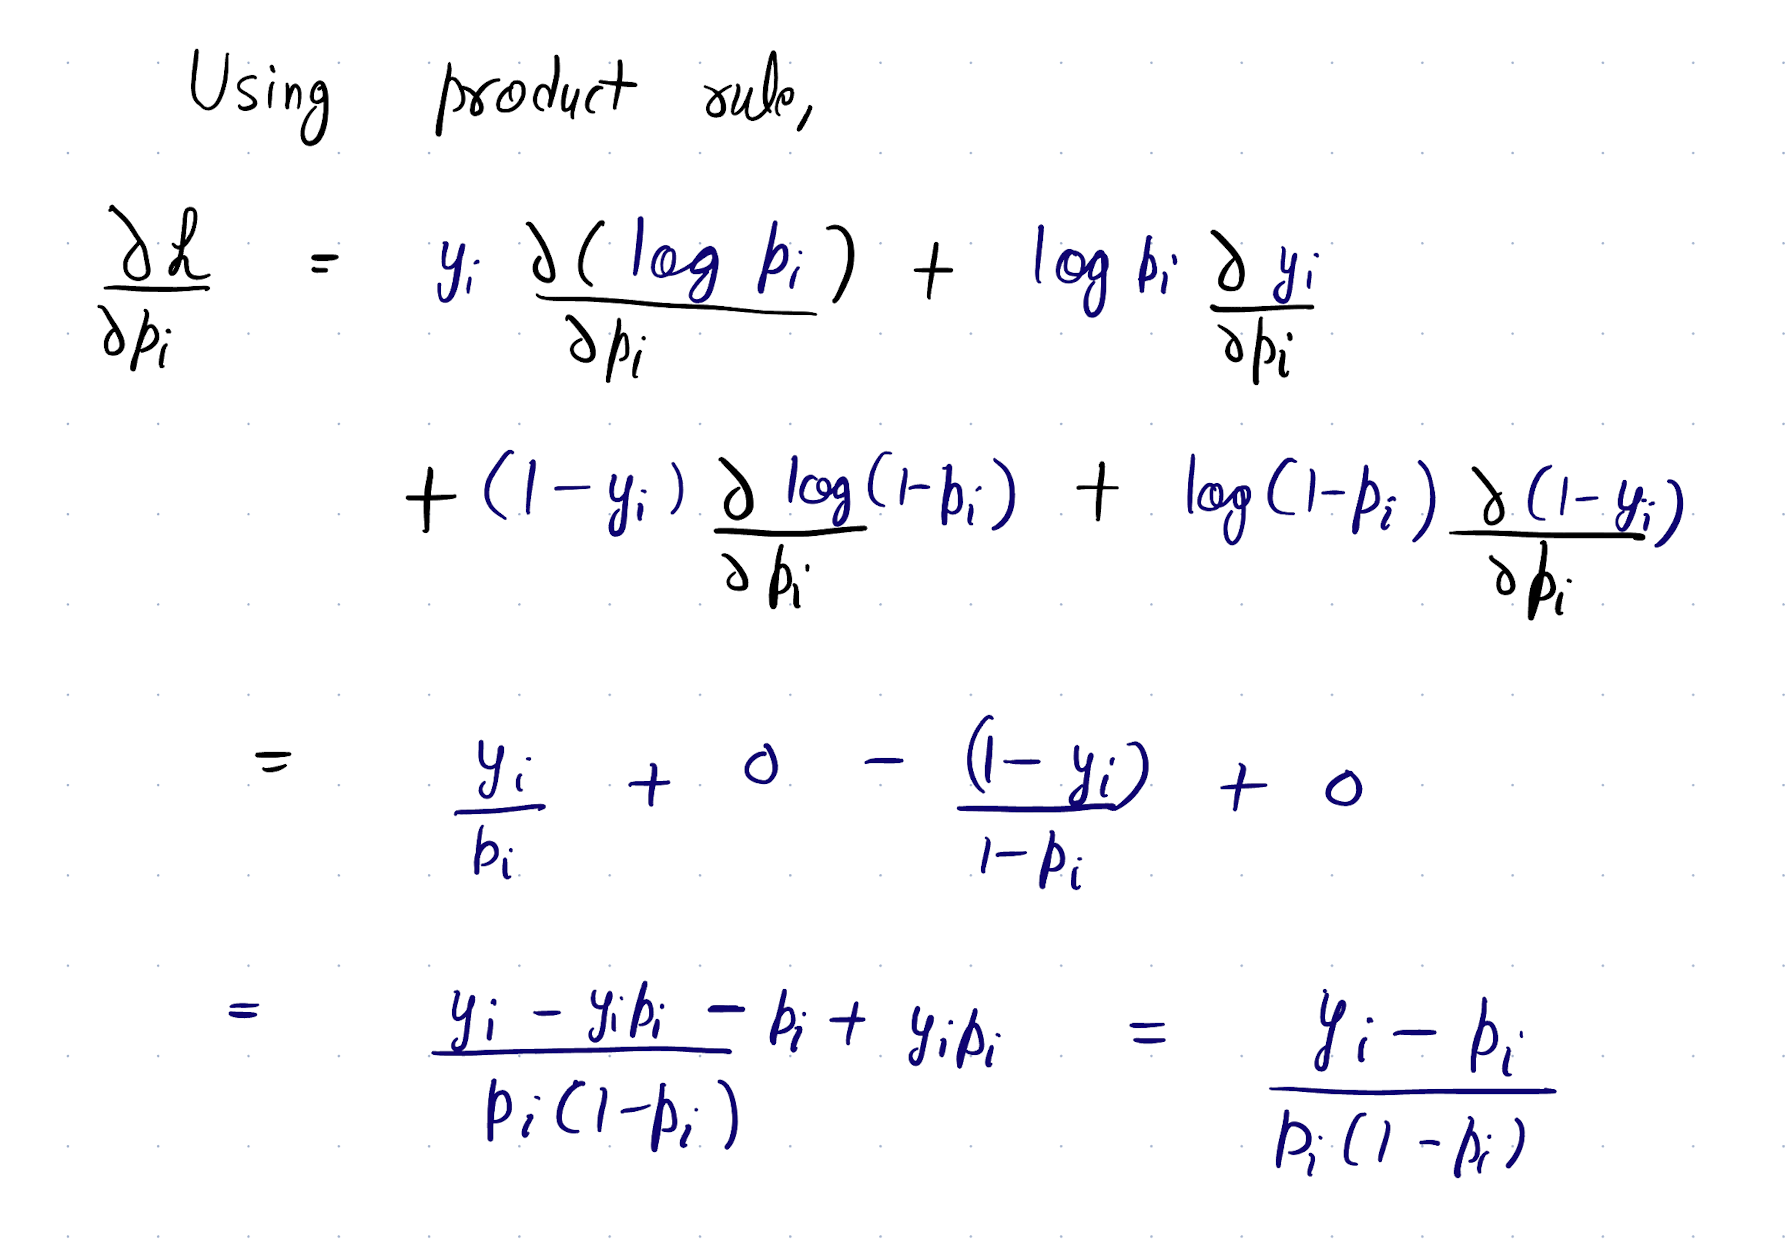 Using product rule,
∂L/∂pᵢ = yᵢ ∂(log pᵢ)/∂pᵢ + log pᵢ ∂yᵢ/∂pᵢ
+ (1-yᵢ) ∂ log(1-pᵢ)/∂pᵢ + log(1-pᵢ) ∂(1-yᵢ)/∂pᵢ
= yᵢ/pᵢ + 0 - (1-yᵢ)/(1-pᵢ) + 0
= (yᵢ - yᵢpᵢ - pᵢ + yᵢpᵢ)/(pᵢ(1-pᵢ)) = (yᵢ - pᵢ)/(pᵢ(1-pᵢ))